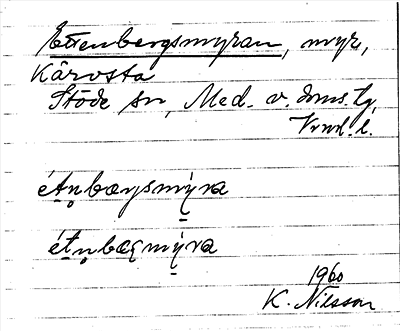 Ettenbergsmyran, myr,
Kårosta
Stöde sn, Med. v. doms. tg,
Vrnl. l.
étn̥bærgsmy̲ra
ét̲n̥bæꞔmy̲ra
1960
K. Nilsson